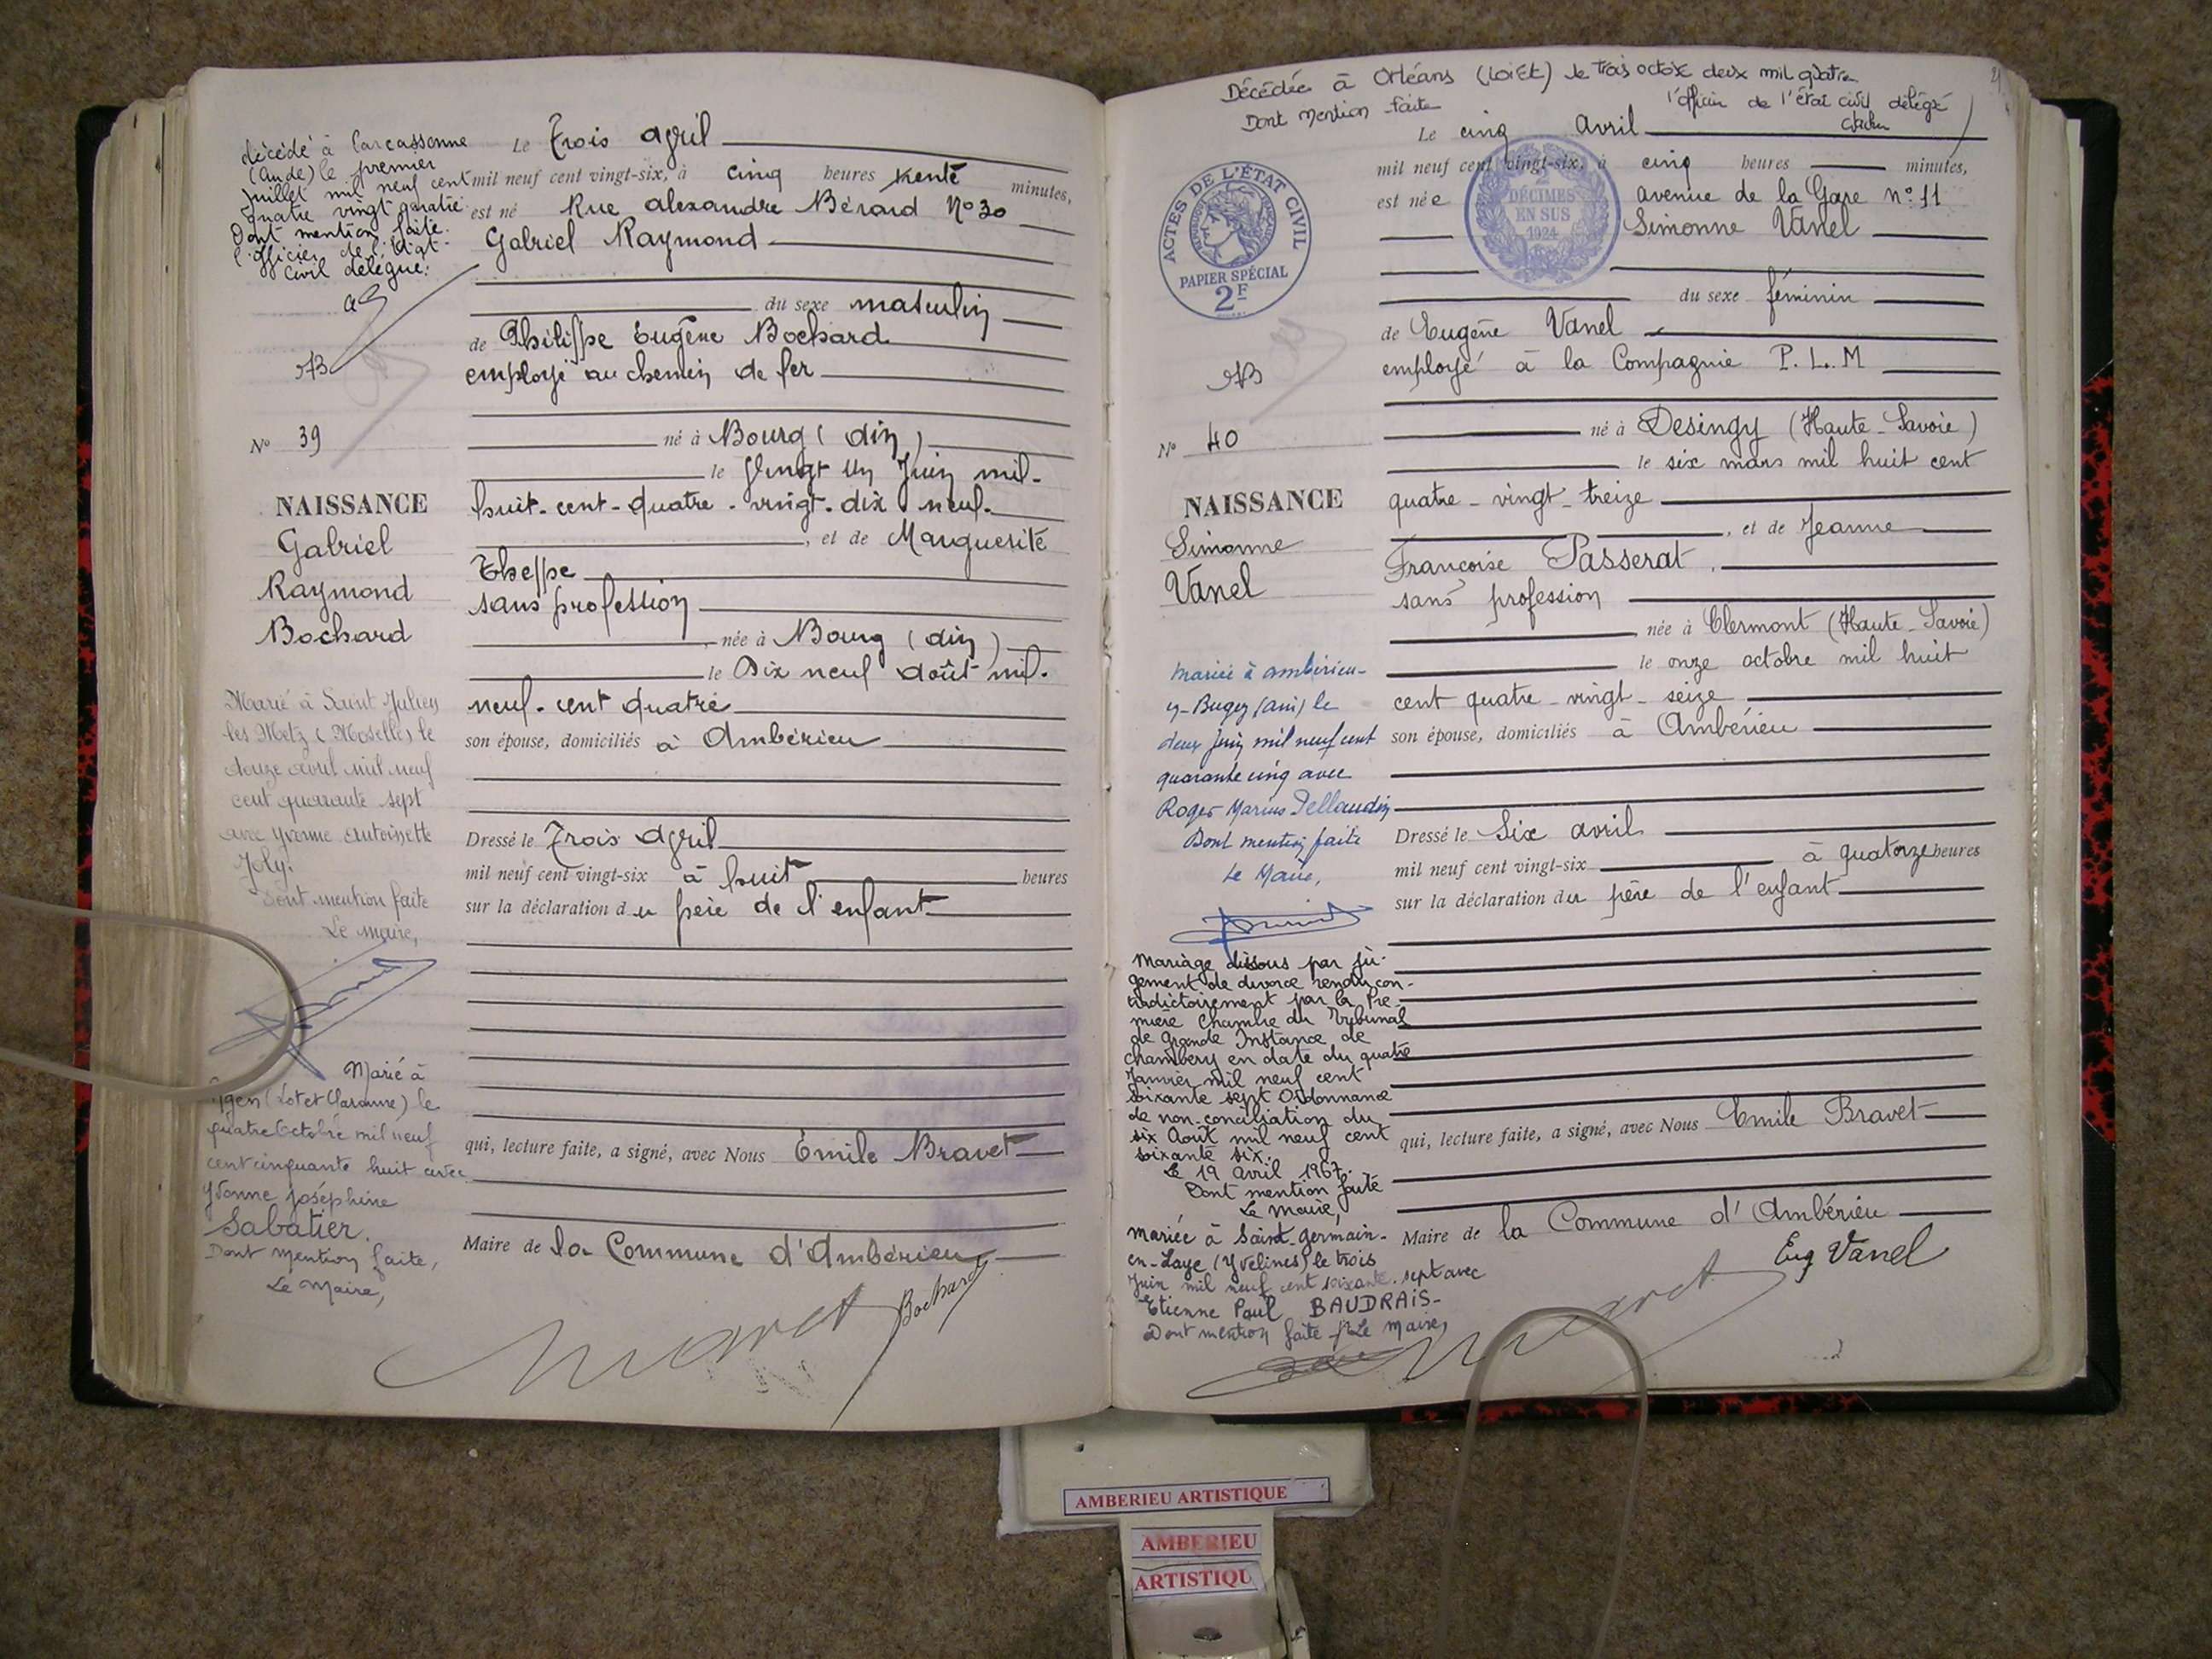 décédé à Carcassonne
(Aude) le premier
Juillet mil neuf cent
quatre vingt quatre
Dont mention faite.
l'officier de l'Etat-
Civil délégué:
N° 39
NAISSANCE
Gabriel
Raymond
Bochard
Marié à Saint Julien
les Metz (Moselle) le
douze avril mil neuf
cent quarante sept
avec Yvonne Antoinette
Joly.
Dont mention faite
Le maire,
Marié à
Agen (Lot et Garonne) le
quatre Octobre mil neuf
cent cinquante huit avec
Yvonne Joséphine
Sabatier.
Dont mention faite,
Le Maire,
Le Trois Avril
mil neuf cent vingt-six, à cinq heures trente minutes,
est né Rue Alexandre Bérard N° 30
Gabriel Raymond
du sexe masculin
de Philippe Eugène Bochard
employé au chemin de fer
né à Bourg (Ain)
le Vingt un Juin mil-
huit-cent-quatre-vingt-dix neuf.
, et de Marguerite
Theppe
sans profession
née à Bourg (Ain)
le Dix neuf Août mil-
neuf-cent quatre
son épouse, domiciliés à Ambérieu
Dressé le Trois Avril
mil neuf cent vingt-six à huit heures
sur la déclaration du père de l'enfant
qui, lecture faite, a signé, avec Nous Émile Bravet
Maire de la Commune d'Ambérieu
Bochard
Décédée à Orléans (Loiret) le trois octobre deux mil quatre
Dont Mention faite l'officier de l'état civil délégué
ACTES DE L'ÉTAT CIVIL
PAPIER SPÉCIAL
2F
2
DÉCIMES
EN SUS
1924
N° 40
NAISSANCE
Simonne
Vanel
Mariée à Ambérieu-
en-Bugey (Ain) le
deux Juin mil neuf cent
quarante cinq avec
Roger Marius Pellaudin
Dont mention faite
Le Maire,
Mariage dissous par ju-
gement de divorce rendu con-
tradictoirement par la Pre-
mière Chambre du Tribunal
de Grande Instance de
Chambéry en date du quatre
Janvier mil neuf cent
soixante sept Ordonnance
de non-conciliation du
six Août mil neuf cent
soixante six.
Le 19 Avril 1967.
Dont mention faite
Le Maire,
Mariée à Saint-Germain-
en-Laye (Yvelines) le trois
Juin mil neuf cent soixante-sept avec
Etienne Paul BAUDRAIS-
Dont mention faite - Le Maire,
Le cinq Avril
mil neuf cent vingt-six, à cinq heures minutes,
est née avenue de la Gare n° 11
Simonne Vanel
du sexe féminin
de Eugène Vanel
employé à la Compagnie P.L.M
né à Desingy (Haute-Savoie)
le six mars mil huit cent
quatre-vingt-treize
, et de Jeanne
Françoise Passerat
sans profession
née à Clermont (Haute-Savoie)
le onze octobre mil huit
cent quatre-vingt-seize
son épouse, domiciliés à Ambérieu
Dressé le Six avril
mil neuf cent vingt-six à quatorze heures
sur la déclaration du père de l'enfant
qui, lecture faite, a signé, avec Nous Emile Bravet
Maire de la Commune d'Ambérieu
Eug Vanel
AMBERIEU ARTISTIQUE
AMBERIEU
ARTISTIQU